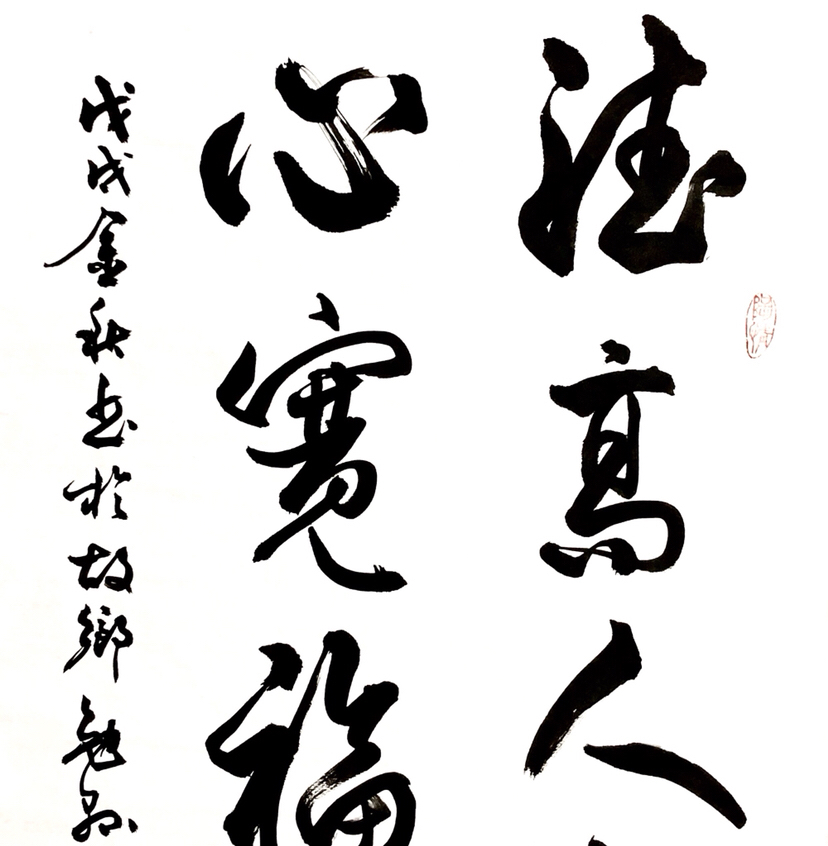 德高人
心宽福
戊戌金秋书於故鄉